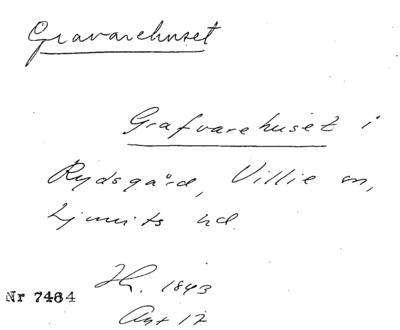 Gravarehuset
Grafvarehuset i
Rydsgård, Villie sn,
Ljunits hd.
Hz. 1843
Ant 17
Nr 7464